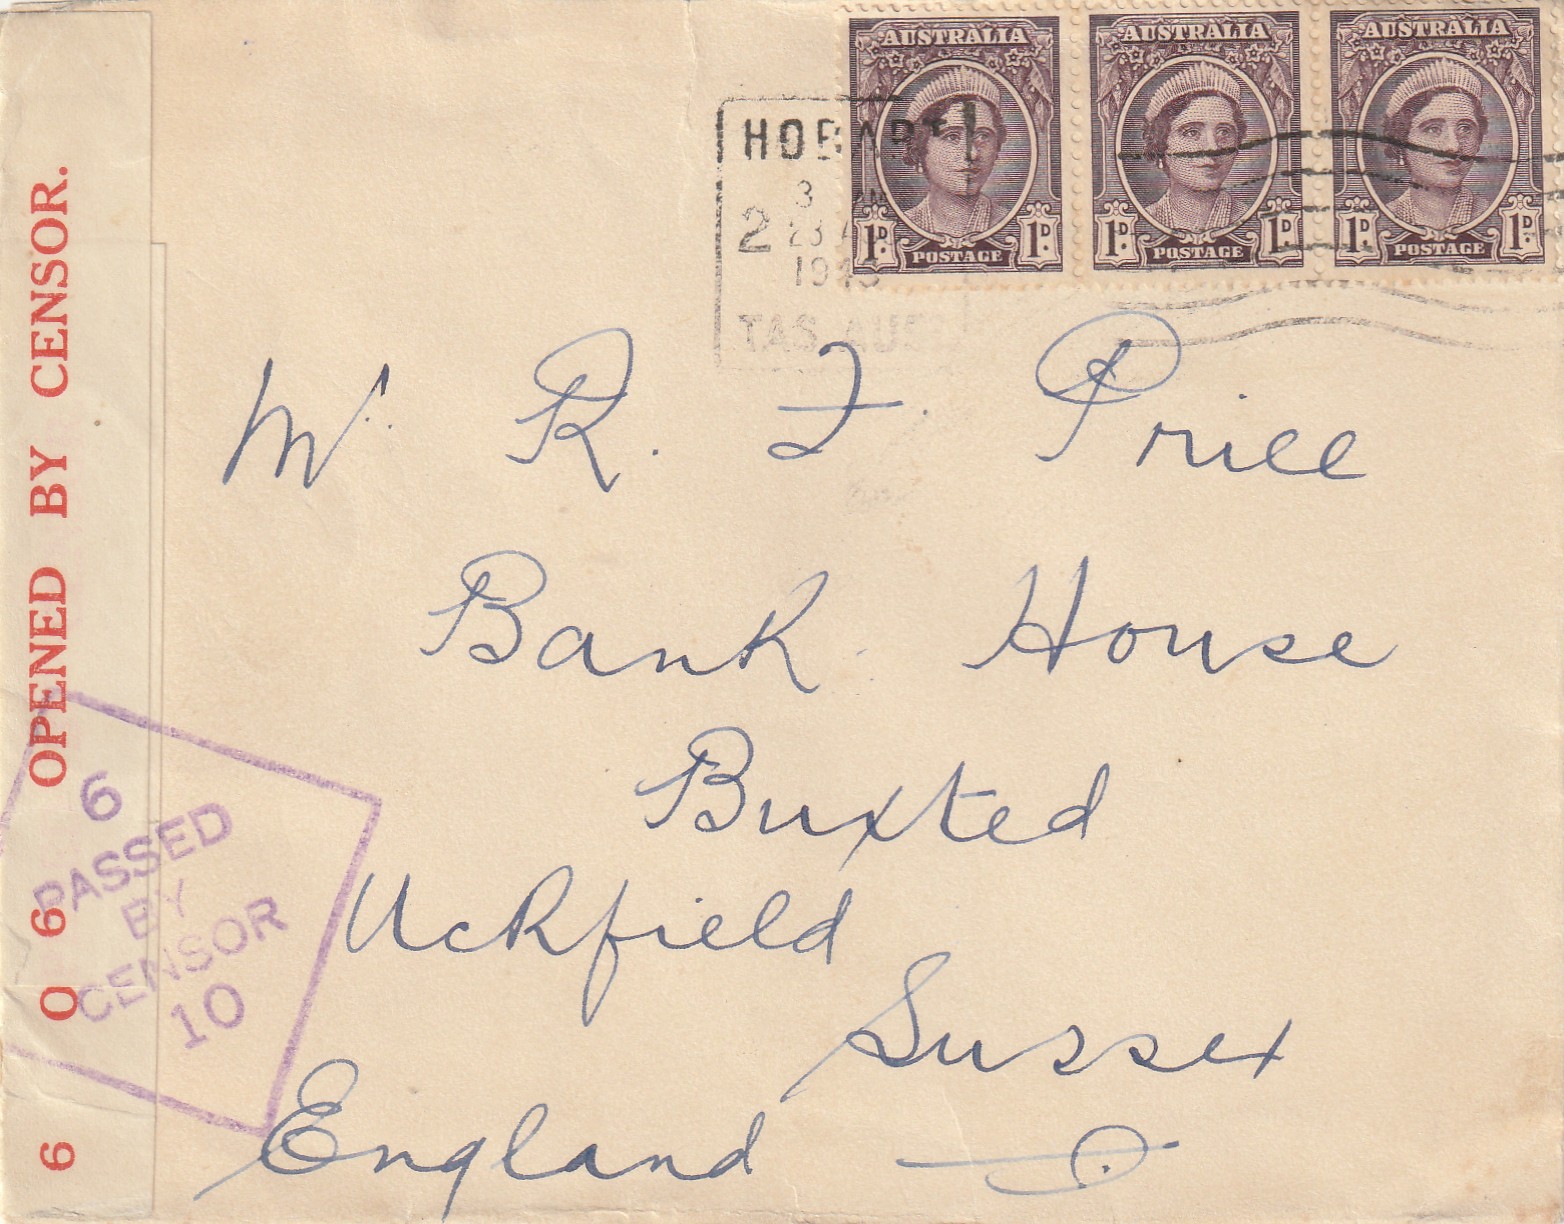 AUSTRALIA AUSTRALIA AUSTRALIA
1D. POSTAGE 1D. 1D. POSTAGE 1D. 1D. POSTAGE 1D.
HOBART
3
2 23
19
TAS. AUS
Mr. R. F. Price
Bank House
Buxted
Uckfield
Sussex
England
OPENED BY CENSOR.
6 0 6
6
PASSED
BY
CENSOR
10